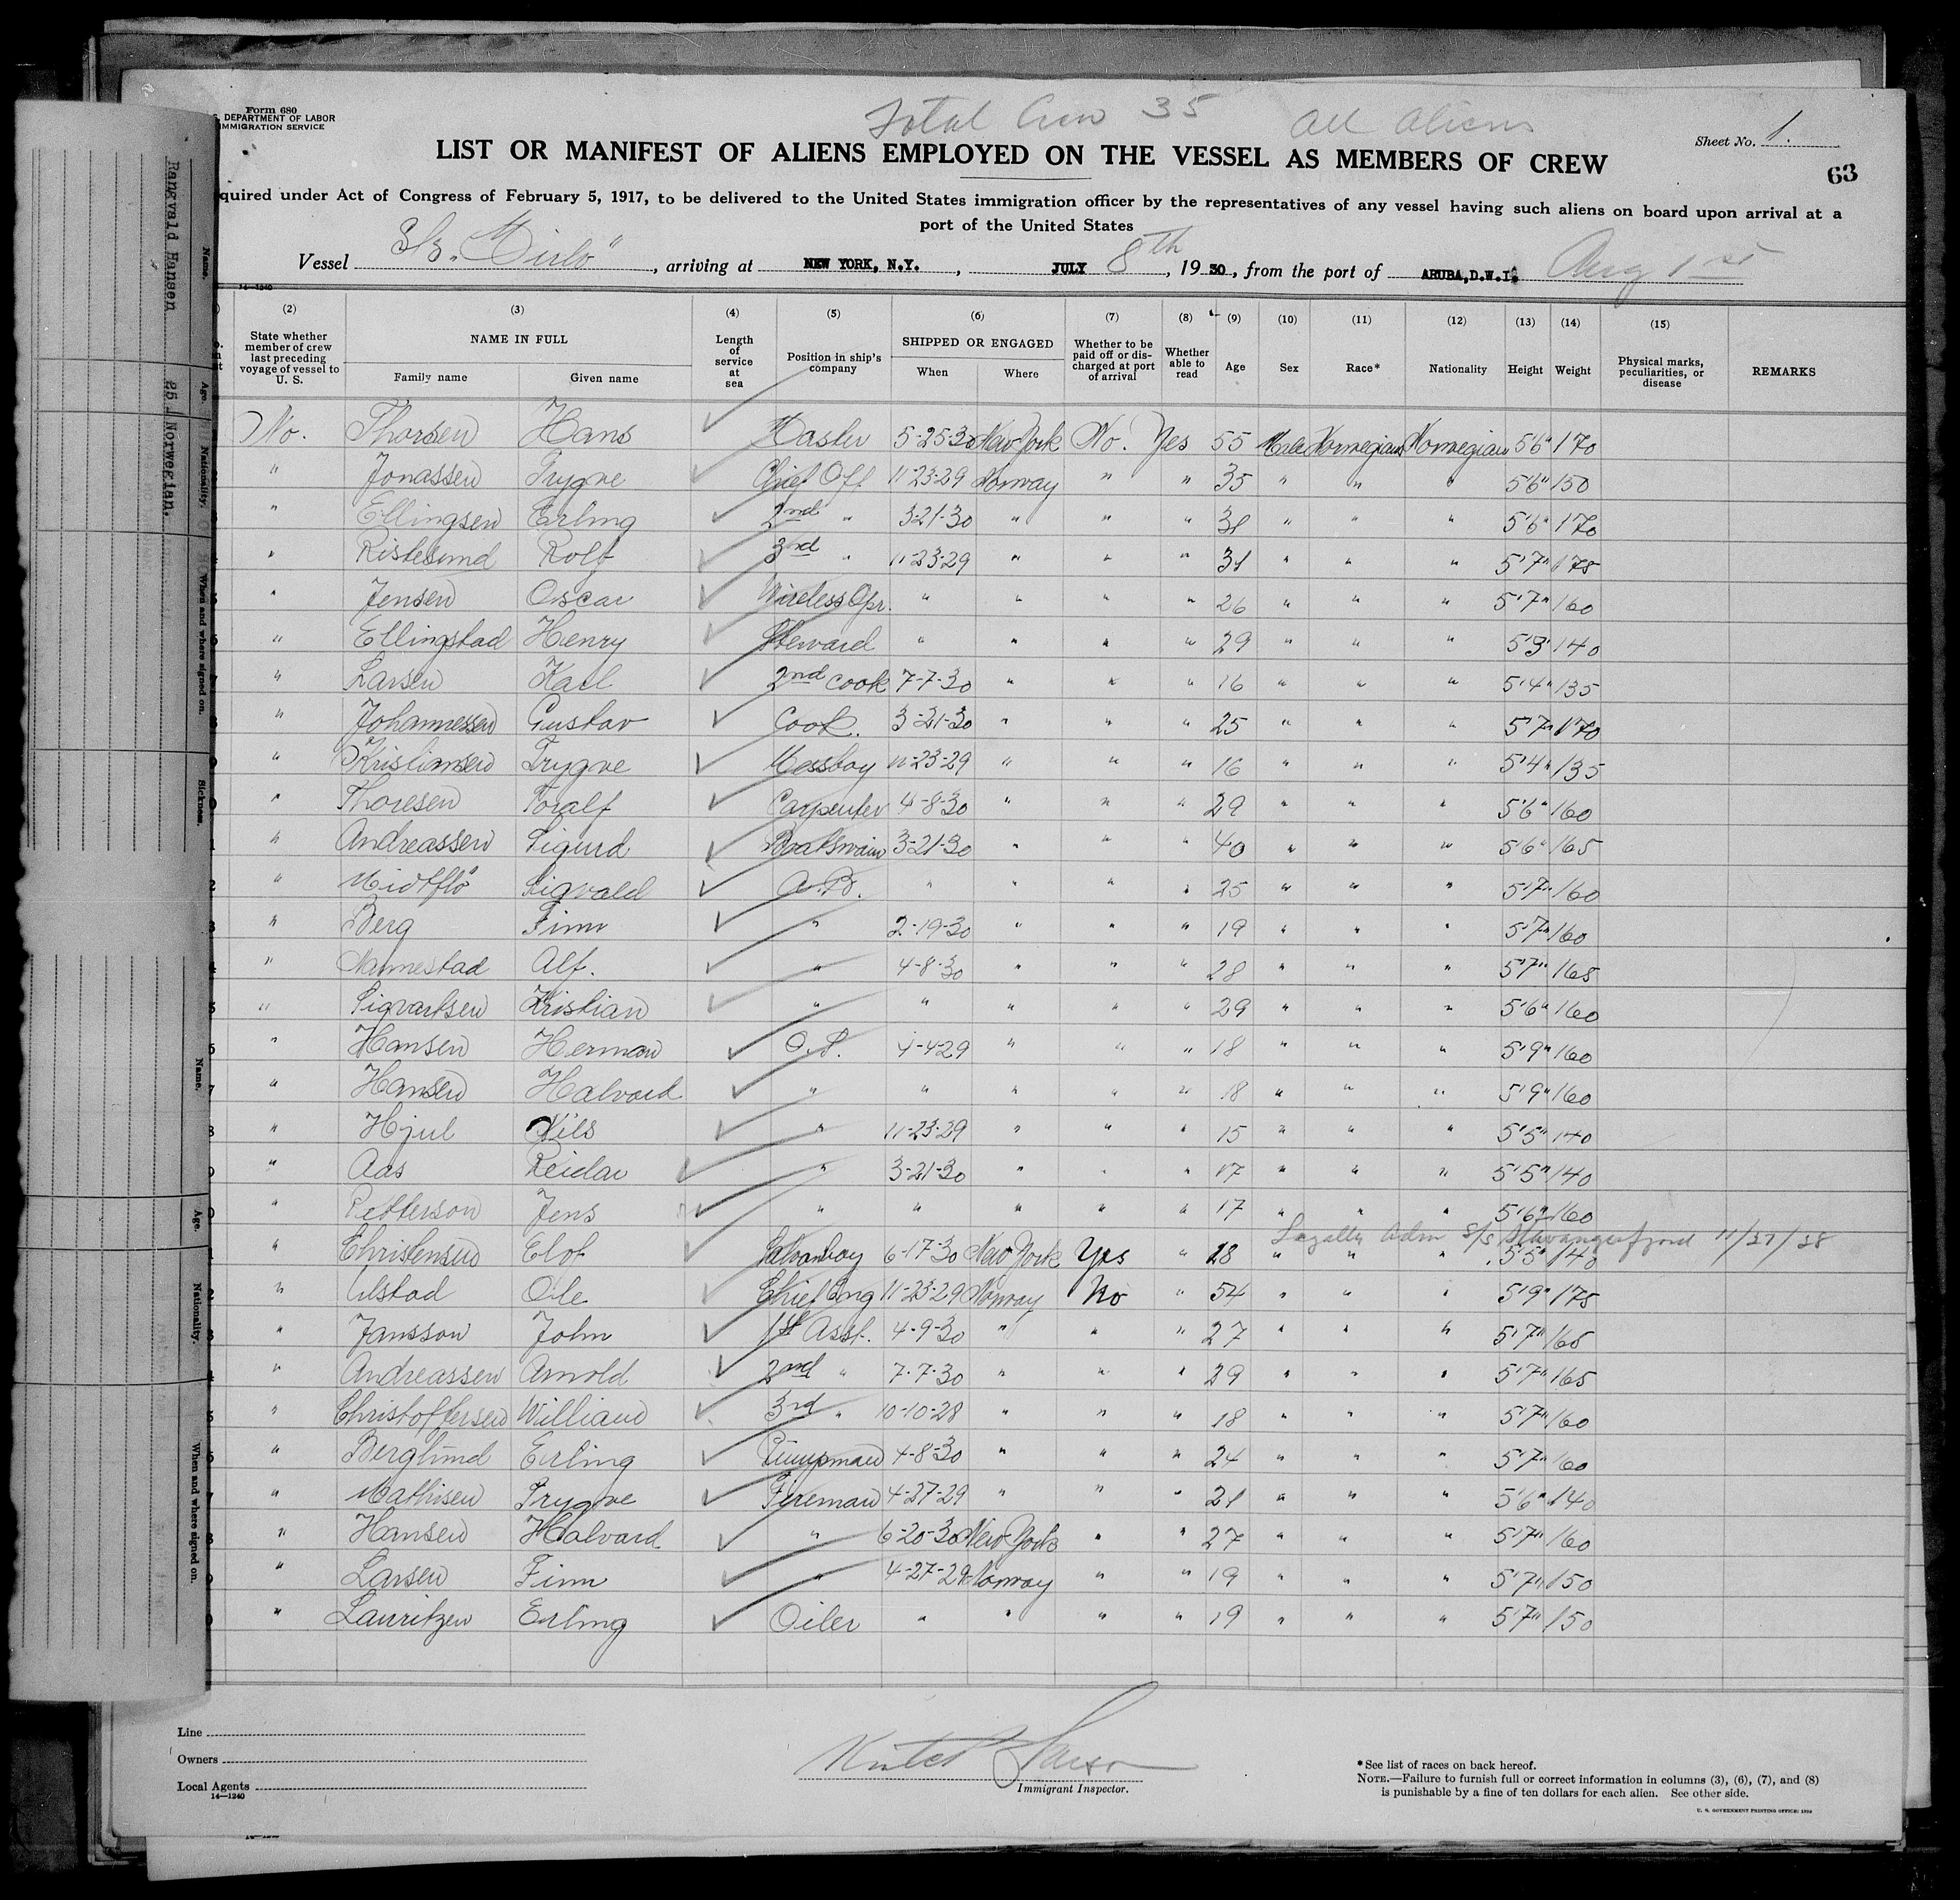 Form 680
DEPARTMENT OF LABOR
IMMIGRATION SERVICE
Total Crew 35 All aliens
Sheet No. 1.
LIST OR MANIFEST OF ALIENS EMPLOYED ON THE VESSEL AS MEMBERS OF CREW
63
quired under Act of Congress of February 5, 1917, to be delivered to the United States immigration officer by the representatives of any vessel having such aliens on board upon arrival at a
port of the United States
Vessel , arriving at NEW YORK, N.Y. , JULY 8th , 19 30 , from the port of ARUBA, D.W.I. Aug 1st
14—1240
(2) (3) (4) (5) (6) (7) (8) (9) (10) (11) (12) (13) (14) (15)
State whether member of crew last preceding voyage of vessel to U. S. NAME IN FULL Family name Given name Length of service at sea Position in ship's company SHIPPED OR ENGAGED When Where Whether to be paid off or discharged at port of arrival Whether able to read Age Sex Race* Nationality Height Weight Physical marks, peculiarities, or disease REMARKS
No. Thorsen Hans Master 5-25-30 New York No. Yes 55 Male Norwegian Norwegian 5'6" 170
" Jonassen Trygve Chief Off 11-23-29 Norway " " 35 " " " 5'6" 150
" Ellingsen Erling 2nd " 3-21-30 " " " 31 " " " 5'6" 170
" Rolf 3rd " 11-23-29 " " " 31 " " " 5'7" 175
" Jensen Oscar Wireless Opr. " " " " 26 " " " 5'7" 160
" Ellingstad Henry Steward " " " " 29 " " " 5'3" 140
" Larsen Karl 2nd Cook 7-7-30 " " " 16 " " " 5'4" 135
" Johannessen Gustav Cook. 3-21-30 " " " 25 " " " 5'7" 170
" Kristiansen Trygve Messboy 11-23-29 " " " 16 " " " 5'4" 135
" Thoresen Toralf Carpenter 4-8-30 " " " 29 " " " 5'6" 160
" Andreassen Sigurd Boatswain 3-21-30 " " " 40 " " " 5'6" 165
" Midtflö Sigvald A.B. " " " " 25 " " " 5'7" 160
" Berg Finn " 2-19-30 " " " 19 " " " 5'7" 160
" Nannestad Alf. " 4-8-30 " " " 28 " " " 5'7" 165
" Sigvartsen Kristian " " " " " 29 " " " 5'6" 160
" Hansen Herman O.S. 4-4-29 " " " 18 " " " 5'9" 160
" Hansen Halvard " " " " " 18 " " " 5'9" 160
" Hjul Nils " 11-23-29 " " " 15 " " " 5'5" 140
" Aas Reidar " 3-21-30 " " " 17 " " " 5'5" 140
" Petterson Jens " " " " 17 " " " 5'6" 160
Legally Adm S/S Stavangerfjord 11/27/28
" Christensen Olof 6-17-30 New York Yes " 28 " " " 5'5" 140
" Ulstad Ole Chief Eng 11-23-29 Norway No " 54 " " " 5'9" 175
" Jansson John 1st Asst. 4-9-30 " " " 27 " " " 5'7" 165
" Andreassen Arnold 2nd " 7-7-30 " " " 29 " " " 5'7" 165
" Christoffersen William 3rd " 10-10-28 " " " 18 " " " 5'7" 160
" Berglund Erling Pumpman 4-8-30 " " " 24 " " " 5'7" 160
" Mathisen Trygve Fireman 4-27-29 " " " 21 " " " 5'6" 140
" Hansen Halvard " 6-20-30 New York " " 27 " " " 5'7" 160
" Larsen Finn " 4-27-29 Norway " " 19 " " " 5'7" 150
" Lauritzen Erling Oiler " " " " 19 " " " 5'7" 150
Line
Owners
Local Agents
14—1240
Immigrant Inspector.
* See list of races on back hereof.
NOTE.—Failure to furnish full or correct information in columns (3), (6), (7), and (8)
is punishable by a fine of ten dollars for each alien. See other side.
U. S. GOVERNMENT PRINTING OFFICE:
Name. Age. Nationality. When and where signed on. Sickness.
Rangvald Hansen 25 Norwegian.
Name. Age. Nationality. When and where signed on.